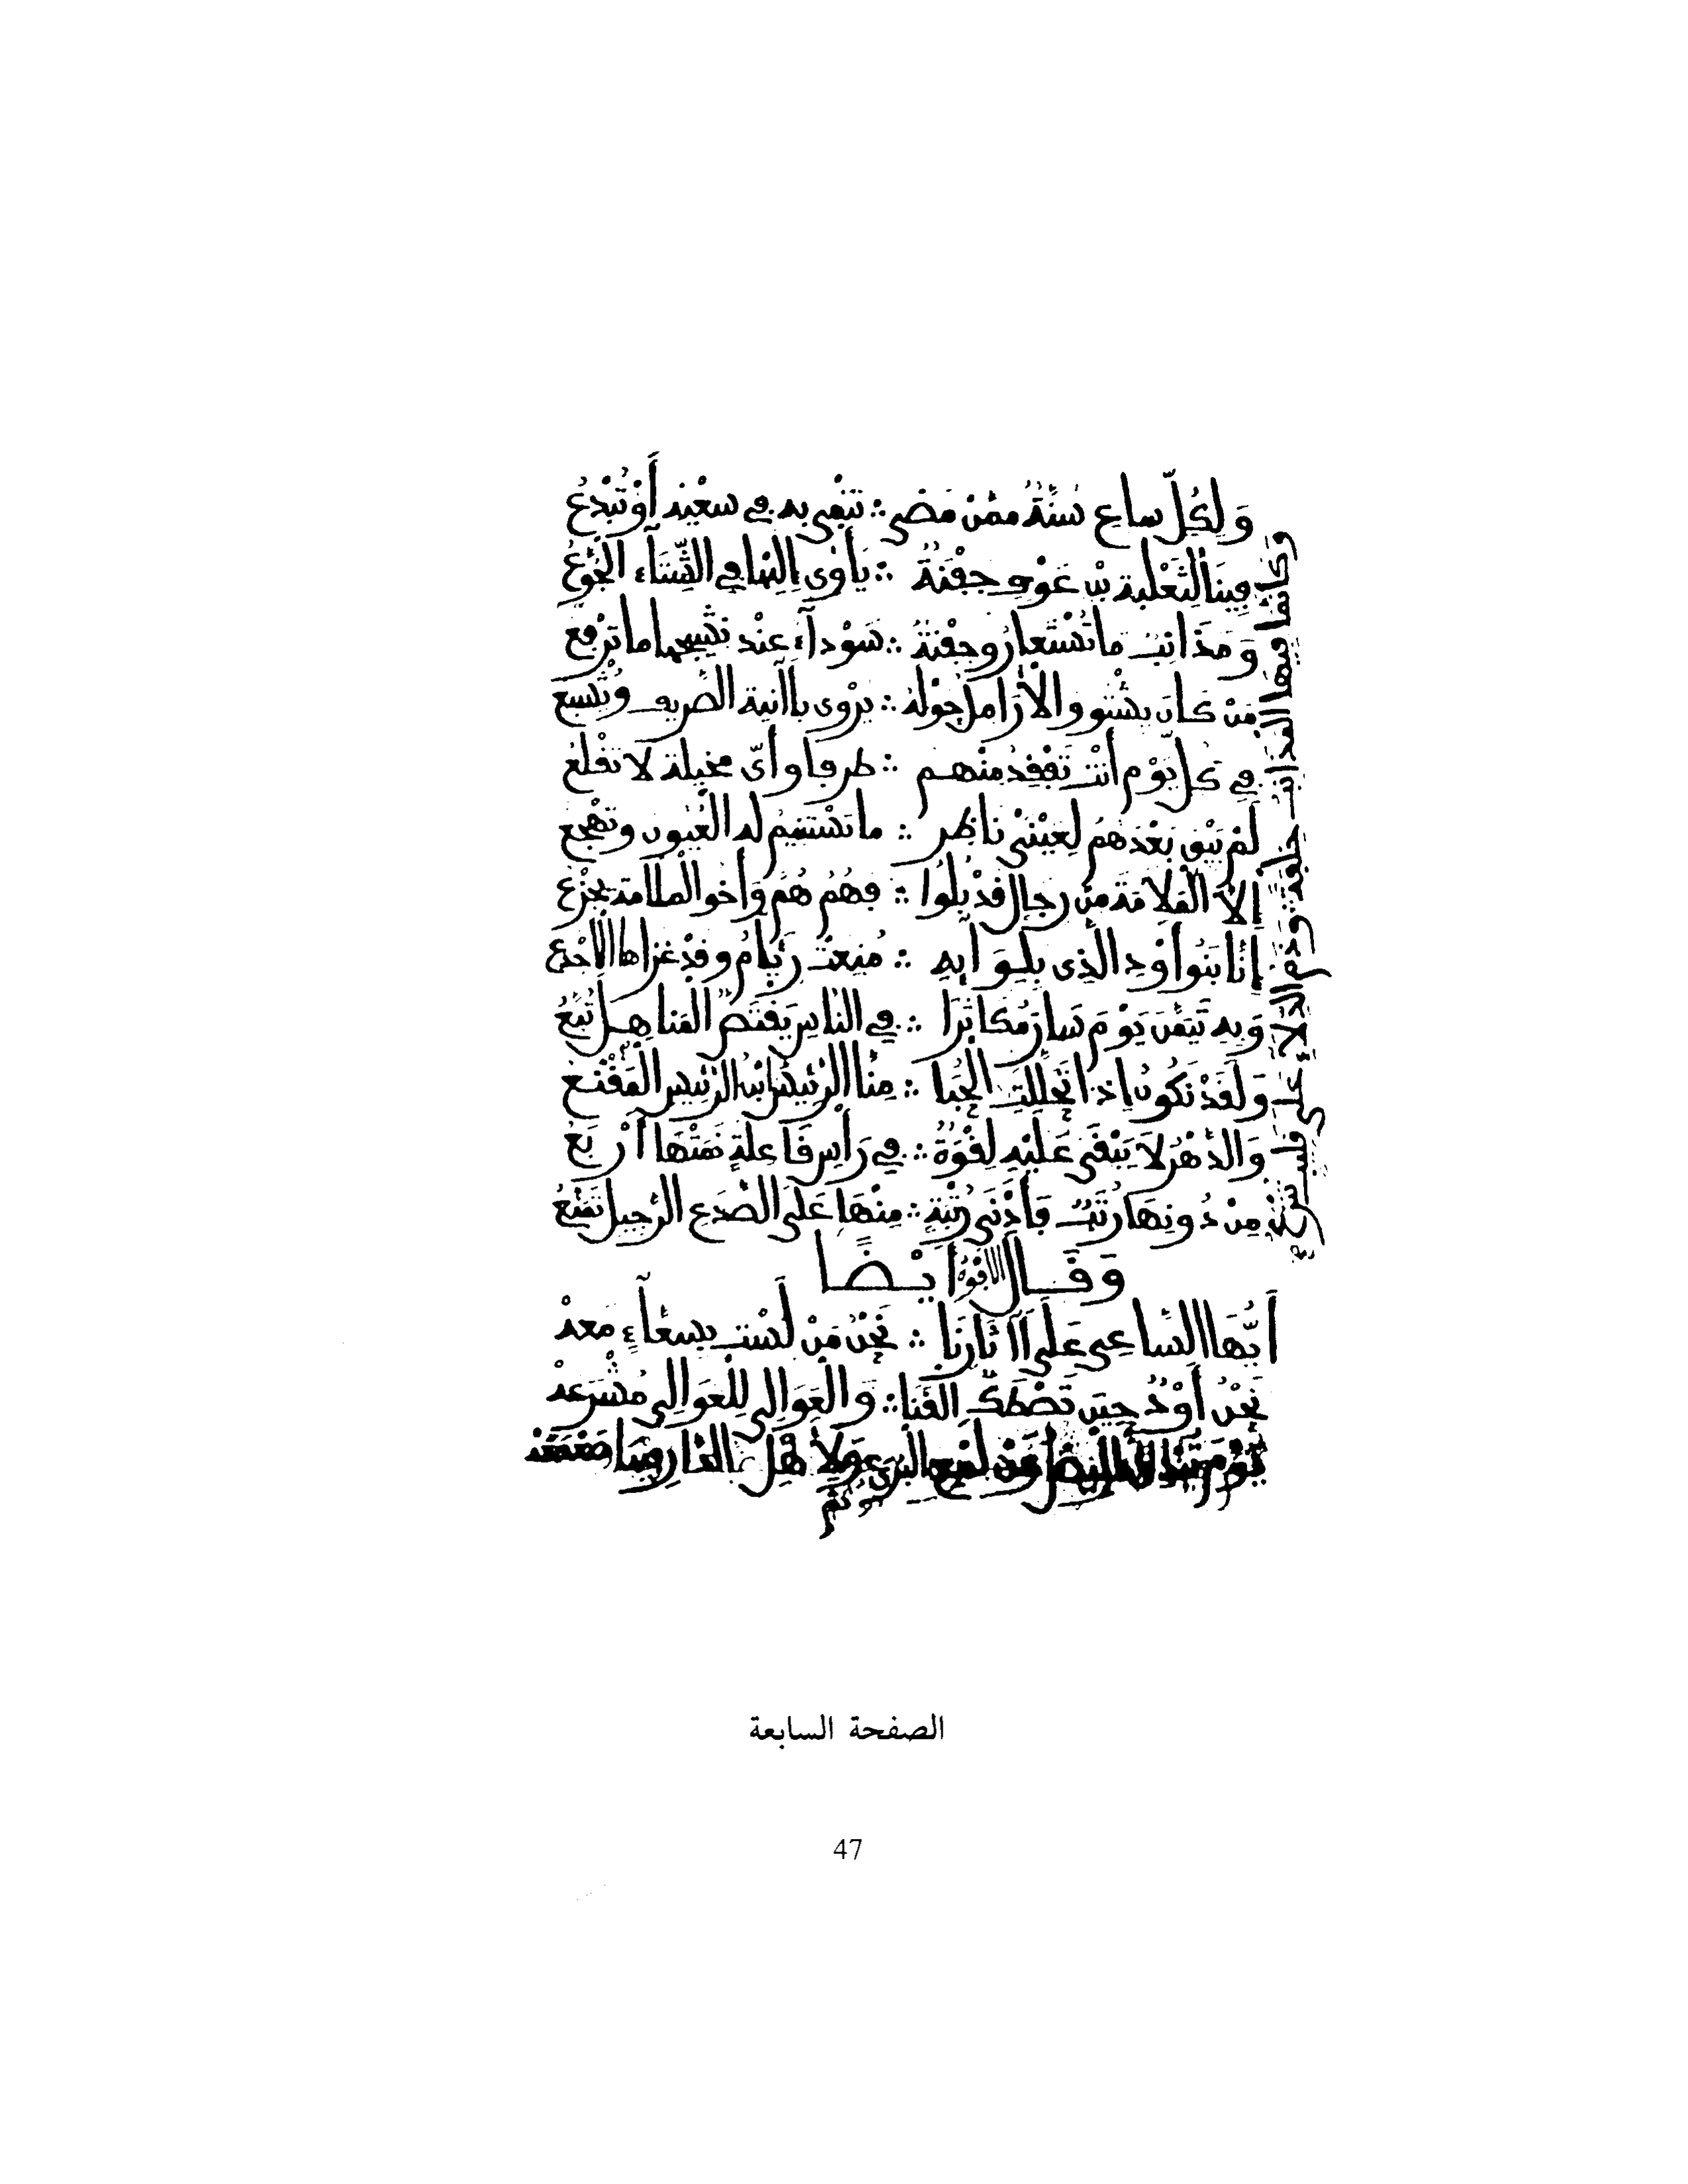 وَلِكُلِّ ساعٍ سُنَّةٌ ممّنْ مَضى ∴ تَنْمِى به في سعْيه أَوْ تُبْدِعُ
فِينَا لِثَعْلبة بن عَوْفٍ جفْنَةٌ ∴ يَأْوى إليْها في الشِّتَآءِ الجُوَّعُ
وَمَذَانِبٌ ما تُسْتعارُ وجفْنَةٌ ∴ سَوْدآءُ عِنْد نشيجها ما ترْفع
مَنْ كان يشْتو والأرَامِلُ حَوْلهُ ∴ يرْوى بِآنية الصَّريف ويُشْبع
في كلّ يَوْم أنْت تَفْقِدُ منْهم ∴ طرفا وأىّ مخيلة لا تقْلعُ
لمْ يَبْق بَعْدَهُمُ لِعَيْنَىْ ناظر ∴ ما تسْتنيمُ له الْعُيون وتهْجع
إلاّ المَلاَمَةَ منْ رجالٍ قدْ بُلُوا ∴ فهُمُ هُمُ وأخو الملامة يجْزع
إنّا بَنُوا أوْدِ الّذى بِلِوَآئِهِ ∴ مُنِعتْ رِئامُ وقدْ غزاها الأجْدع
وَبِه تَيَمّنَ يَوْمَ سَارَ مُكاثِرًا ∴ في النّاسِ يَقْتَصُّ المَناهِل تُبّعُ
وَلَقَدْ نَكُونُ إِذا تَحَلَّلَتِ الحُبَا ∴ مِنّا الرّئيسُ ابنُ الرّئيس المَقْنَع
وَالدّهْرُ لاَ يَبْقَى عَلَيْهِ لِقْوَةٌ ∴ في رَأْسِ قَاعِلَةٍ نَمَتْهَا أَرْبَعُ
مِنْ دُونِهَا رُتَبٌ فَأَدْنَى رُتْبَةٍ ∴ مِنْهَا عَلَى الصَّدَعِ الرَّجِيلِ تَمَنّعُ
وكَأنّما فيها المَذانِبُ خلْفَةً وذَمُ الدِّلاَءِ عَلَى قليب تُنْزَعُ
وَقَالَ الافوه أيْضًا
أَيُّهَا السَّاعِى عَلَى آثَارِنَا ∴ نَحْنُ مَنْ لَسْتَ بِسعّآءٍ مَعهْ
نَحْنُ أَوْدٌ حِينَ تَصْطَكُّ القَنَا ∴ وَالْعَوَالِى لِلْعَوَالِى مُشْرَعهْ
الصفحة السابعة
47